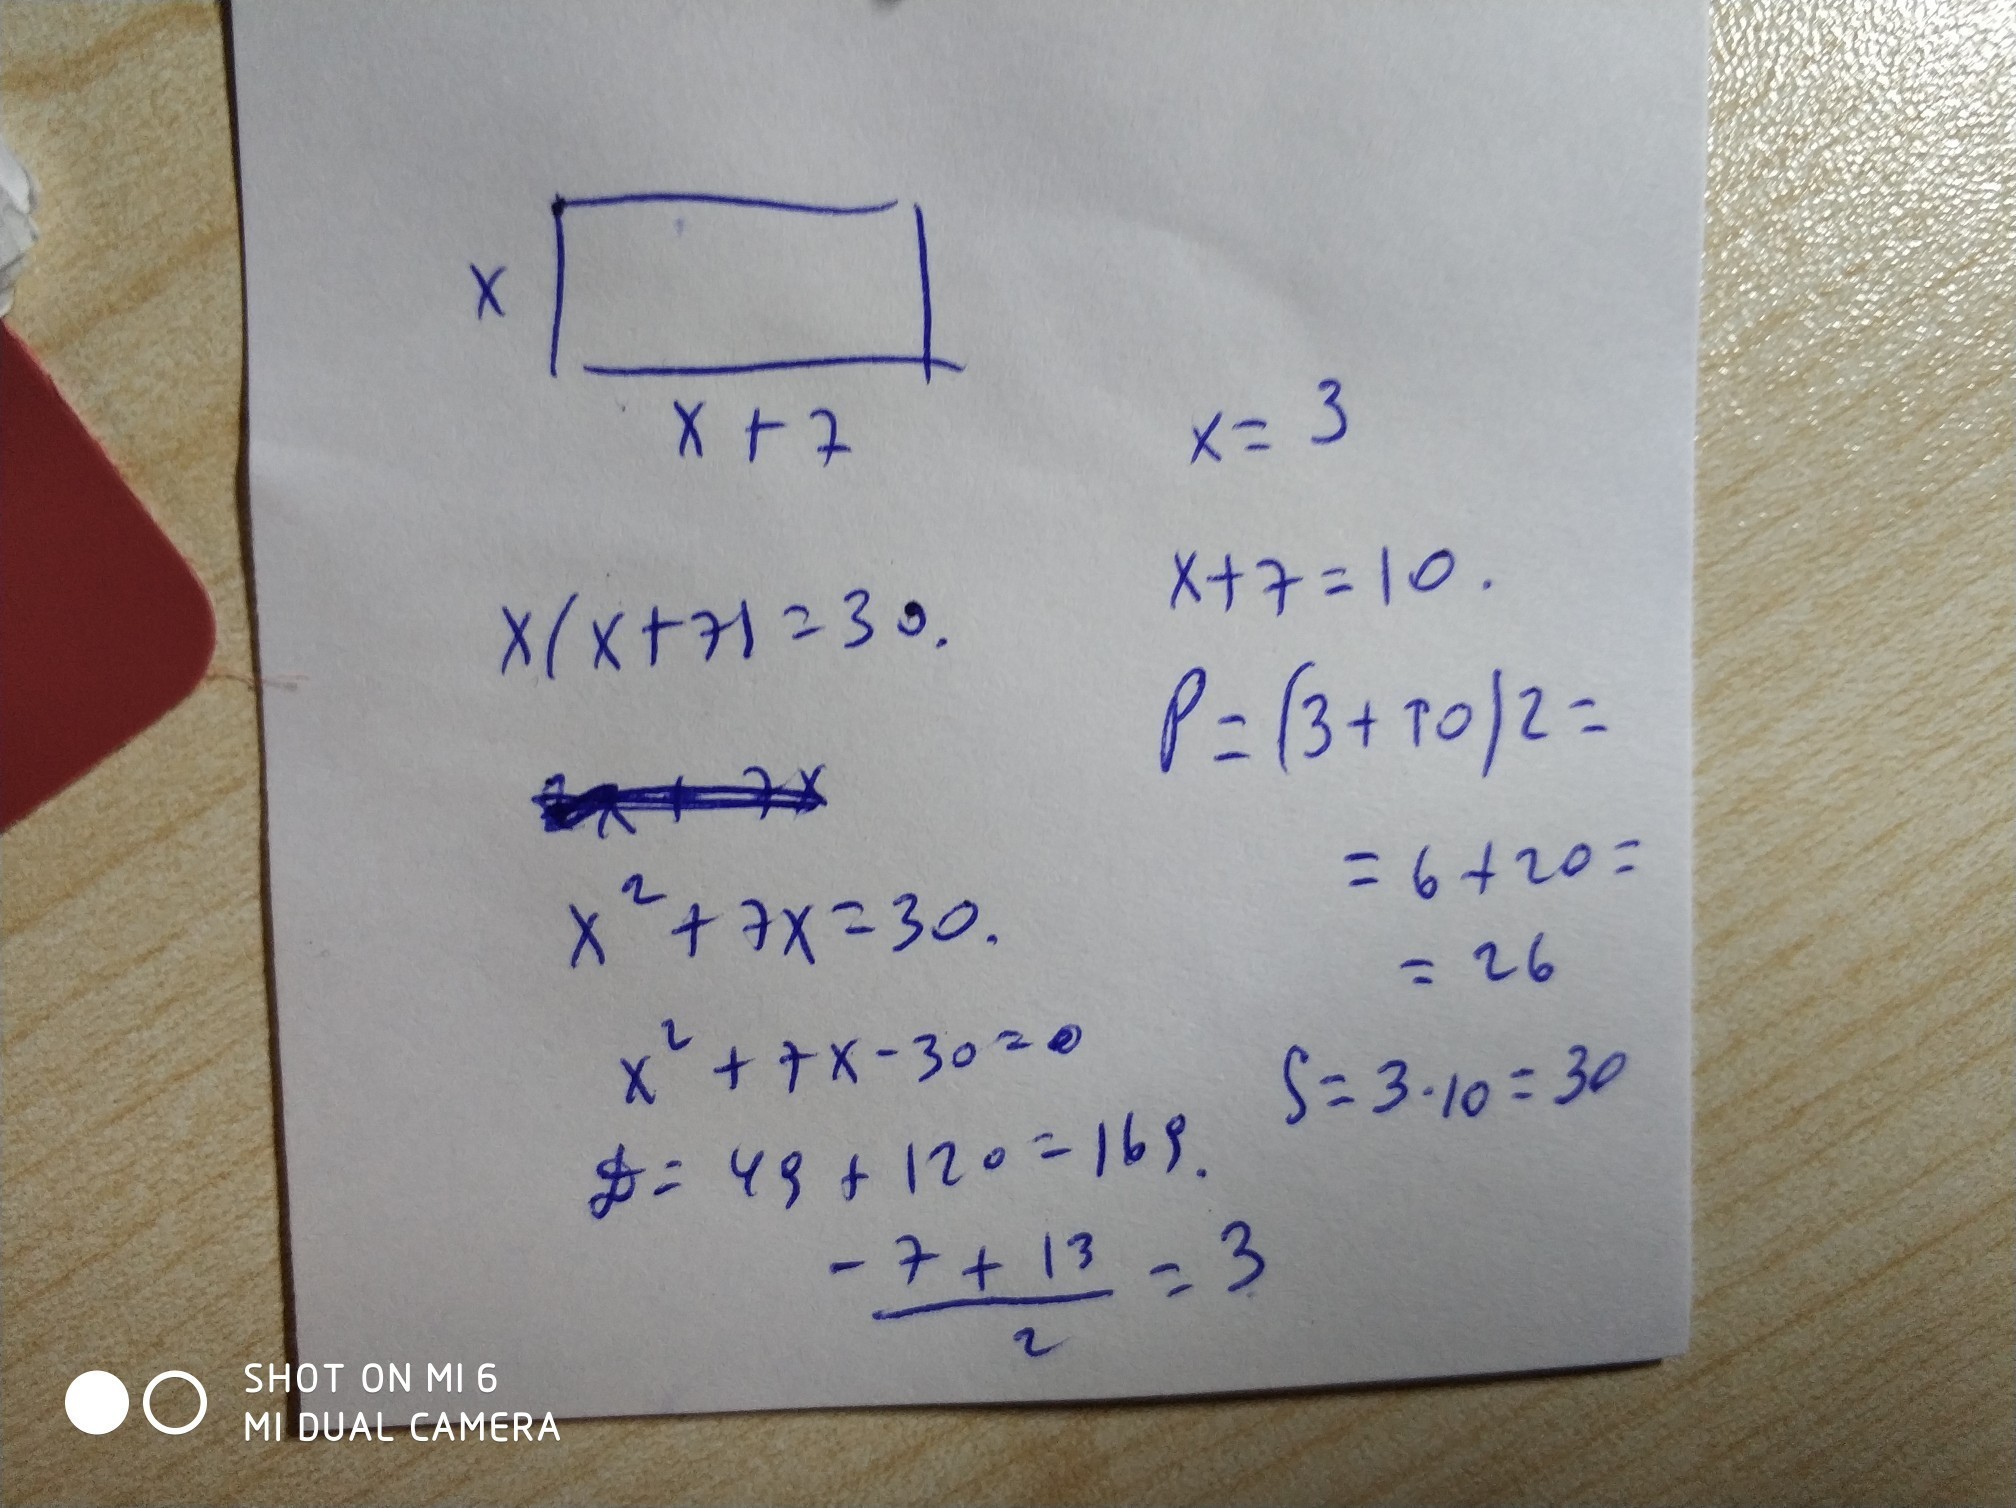 x
x + 7
x(x+7)=30.
x² + 7x=30.
x² + 7x-30=0
D= 49 + 120=169.
-7 + 13
2
=3
x= 3
x+7=10.
P=(3+10)2=
=6+20=
= 26
S=3·10=30
SHOT ON MI 6
MI DUAL CAMERA